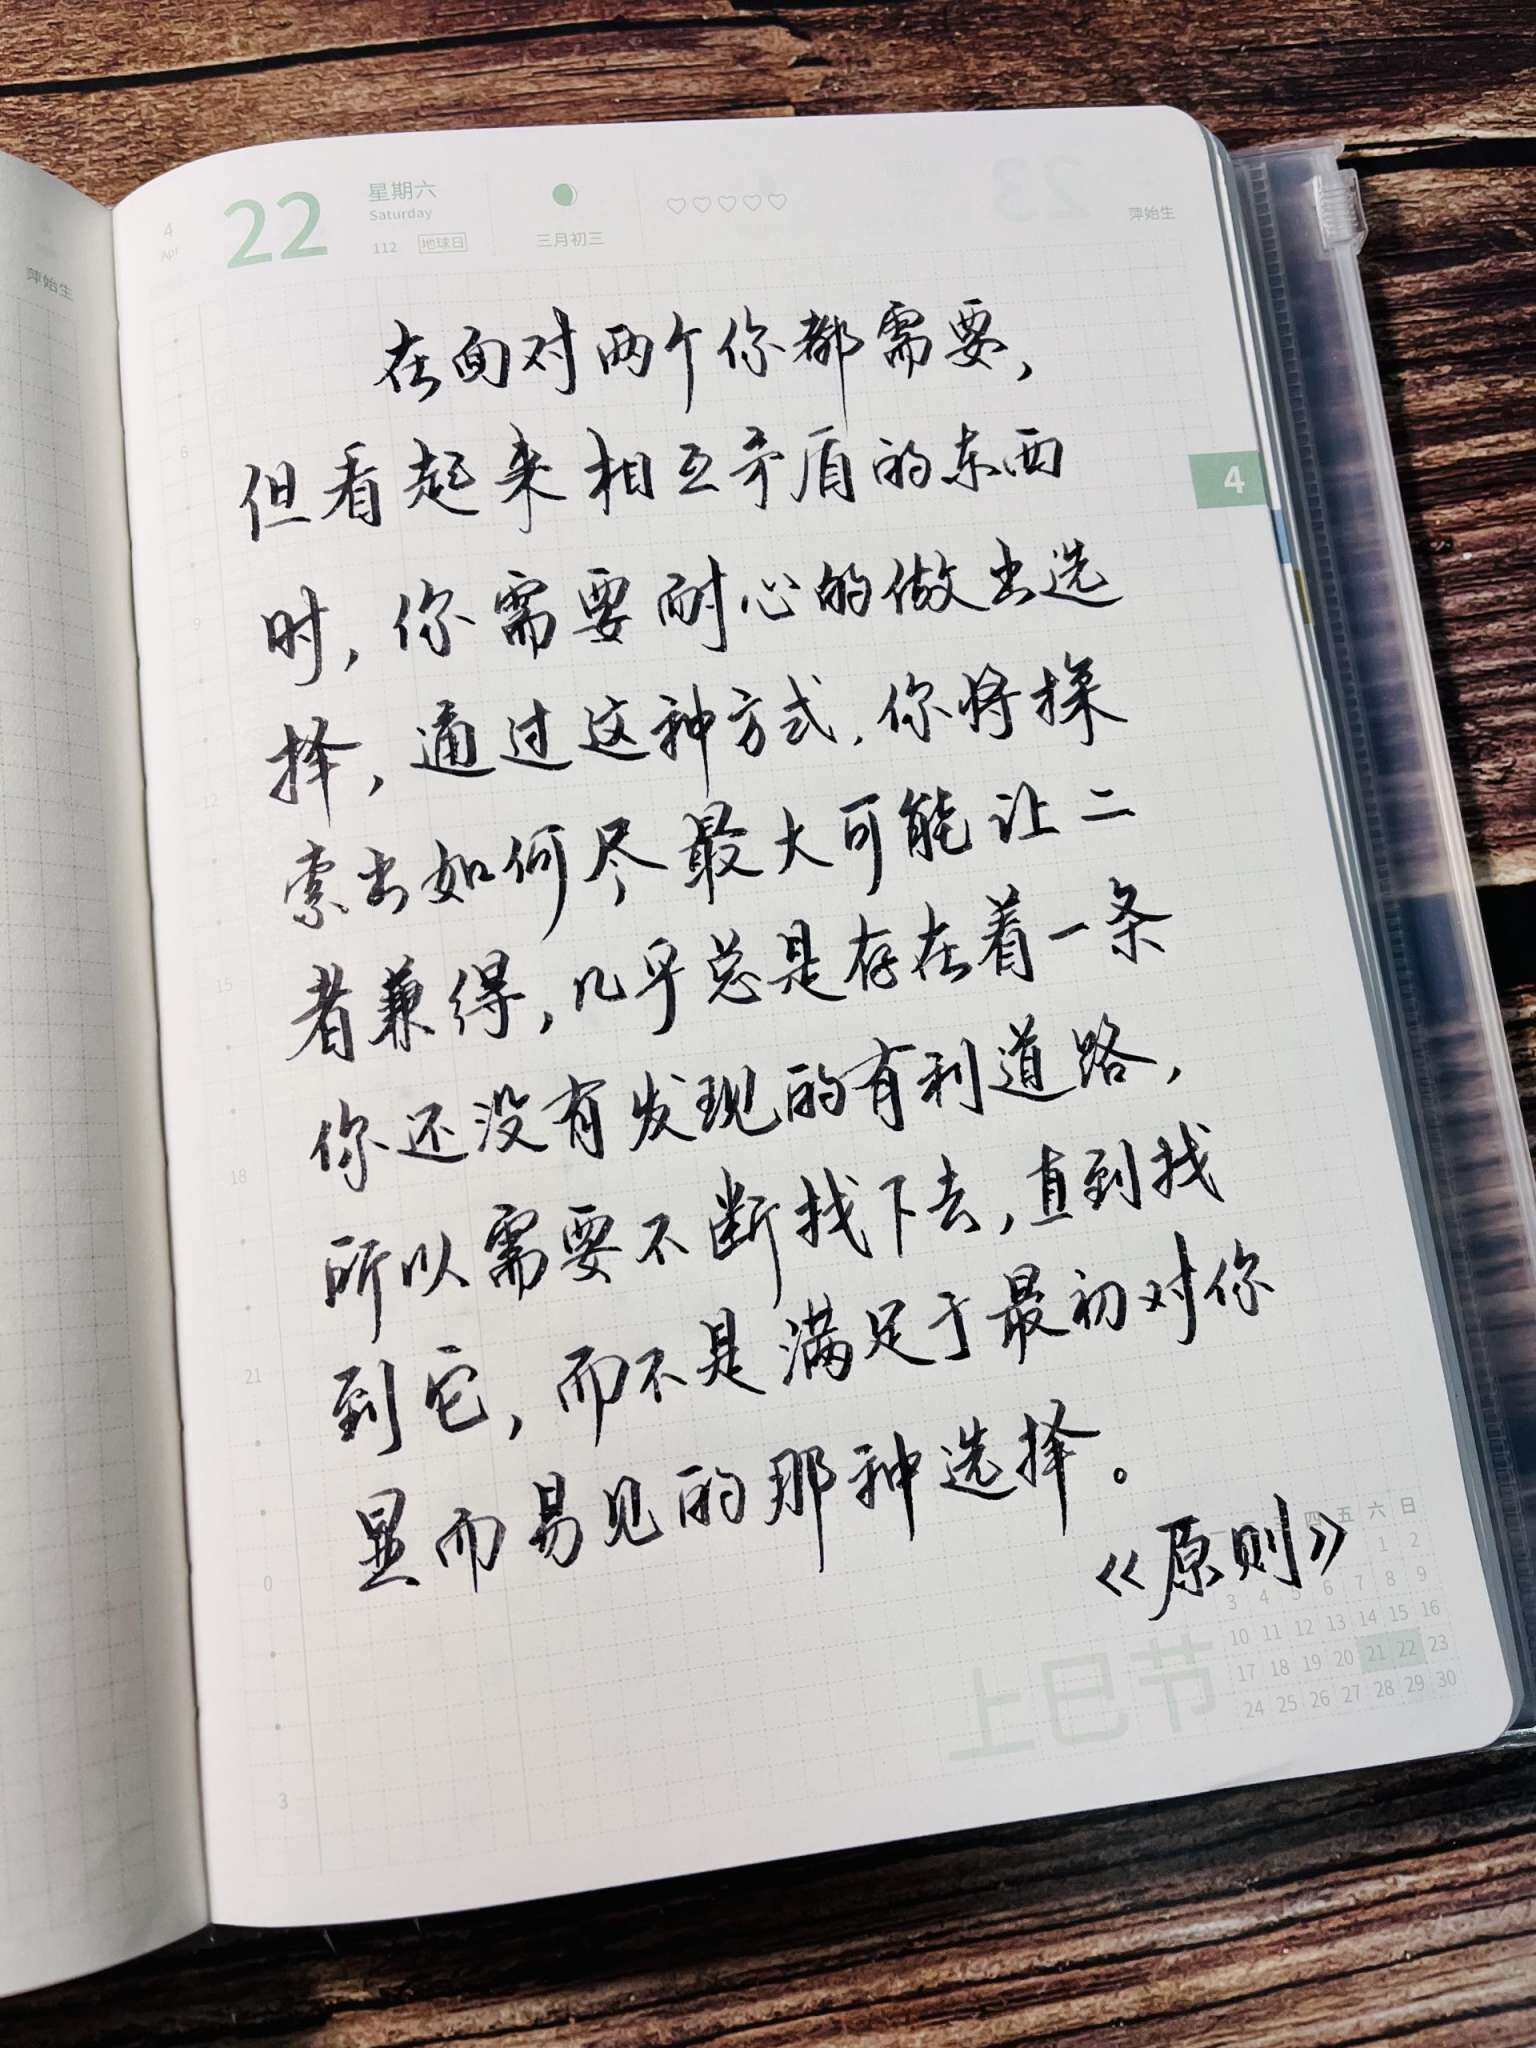 4
Apr
22
星期六
Saturday
112 地球日
三月初三
萍始生
萍始生
4
在面对两个你都需要,
但看起来相互矛盾的东西
时,你需要耐心的做出选
择,通过这种方式,你将探
索出如何尽最大可能让二
者兼得,几乎总是存在着一条
你还没有发现的有利道路,
所以需要不断找下去,直到找
到它,而不是满足于最初对你
显而易见的那种选择。
《原则》
6
9
12
15
18
21
0
3
四 五 六 日
1 2
3 4 5 6 7 8 9
10 11 12 13 14 15 16
17 18 19 20 21 22 23
24 25 26 27 28 29 30
上巳节